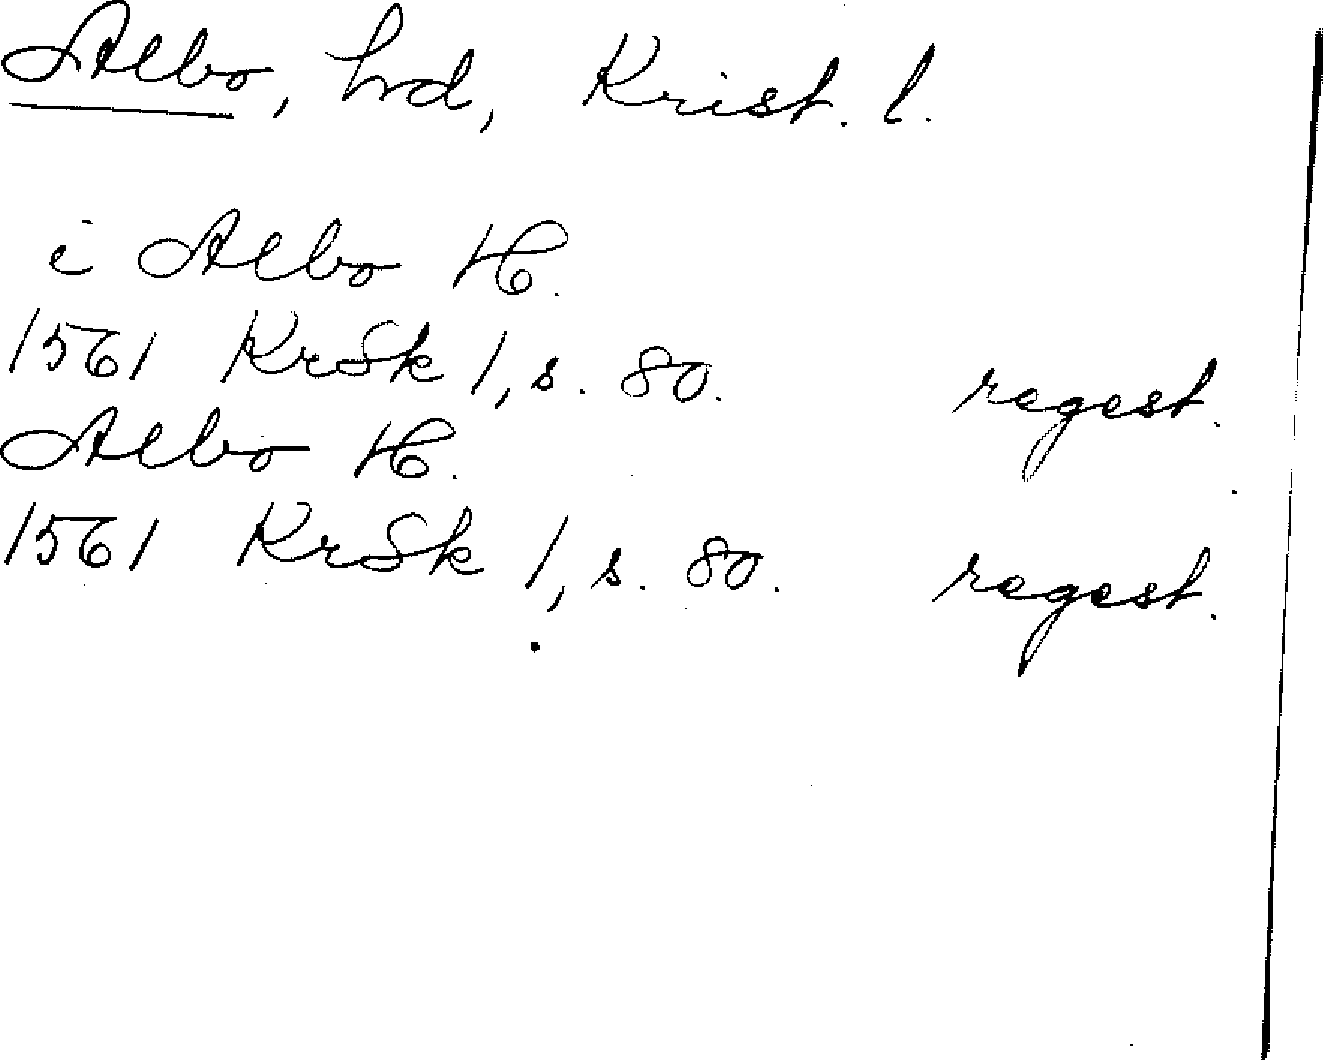 Albo, hd, Krist. l.
i Albo H.
1561 KrSk 1, s. 80. regest.
Albo H.
1561 KrSk 1, s. 80. regest.